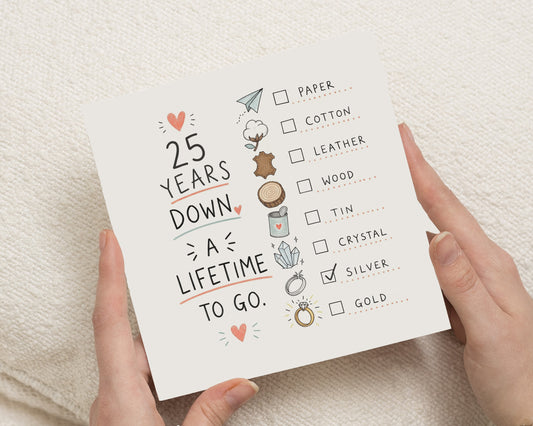 25
YEARS
DOWN
A
LIFETIME
TO GO.
PAPER
COTTON
LEATHER
WOOD
TIN
CRYSTAL
SILVER
GOLD